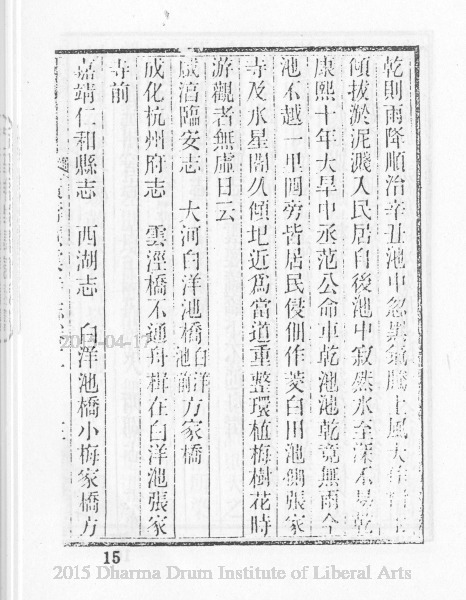 乾則雨降順治辛丑池中忽黑氣騰上風大
傾拔淤泥濺入民居自後池中寂然水至深不易乾
康熙十年大旱中丞范公命車乾池池乾竟無雨今
池不越一里四旁皆居民侵佃作菱白田池側張家
寺及水星閣久傾圯近為當道重整環植梅樹花時
游觀者無虛日云
咸淳臨安志　大河白洋池橋白洋池前方家橋
成化杭州府志　雲溼橋不通舟楫在白洋池張家
寺前
嘉靖仁和縣志　西湖志　白洋池橋小梅家橋方
2015-04-17
15
2015 Dharma Drum Institute of Liberal Arts